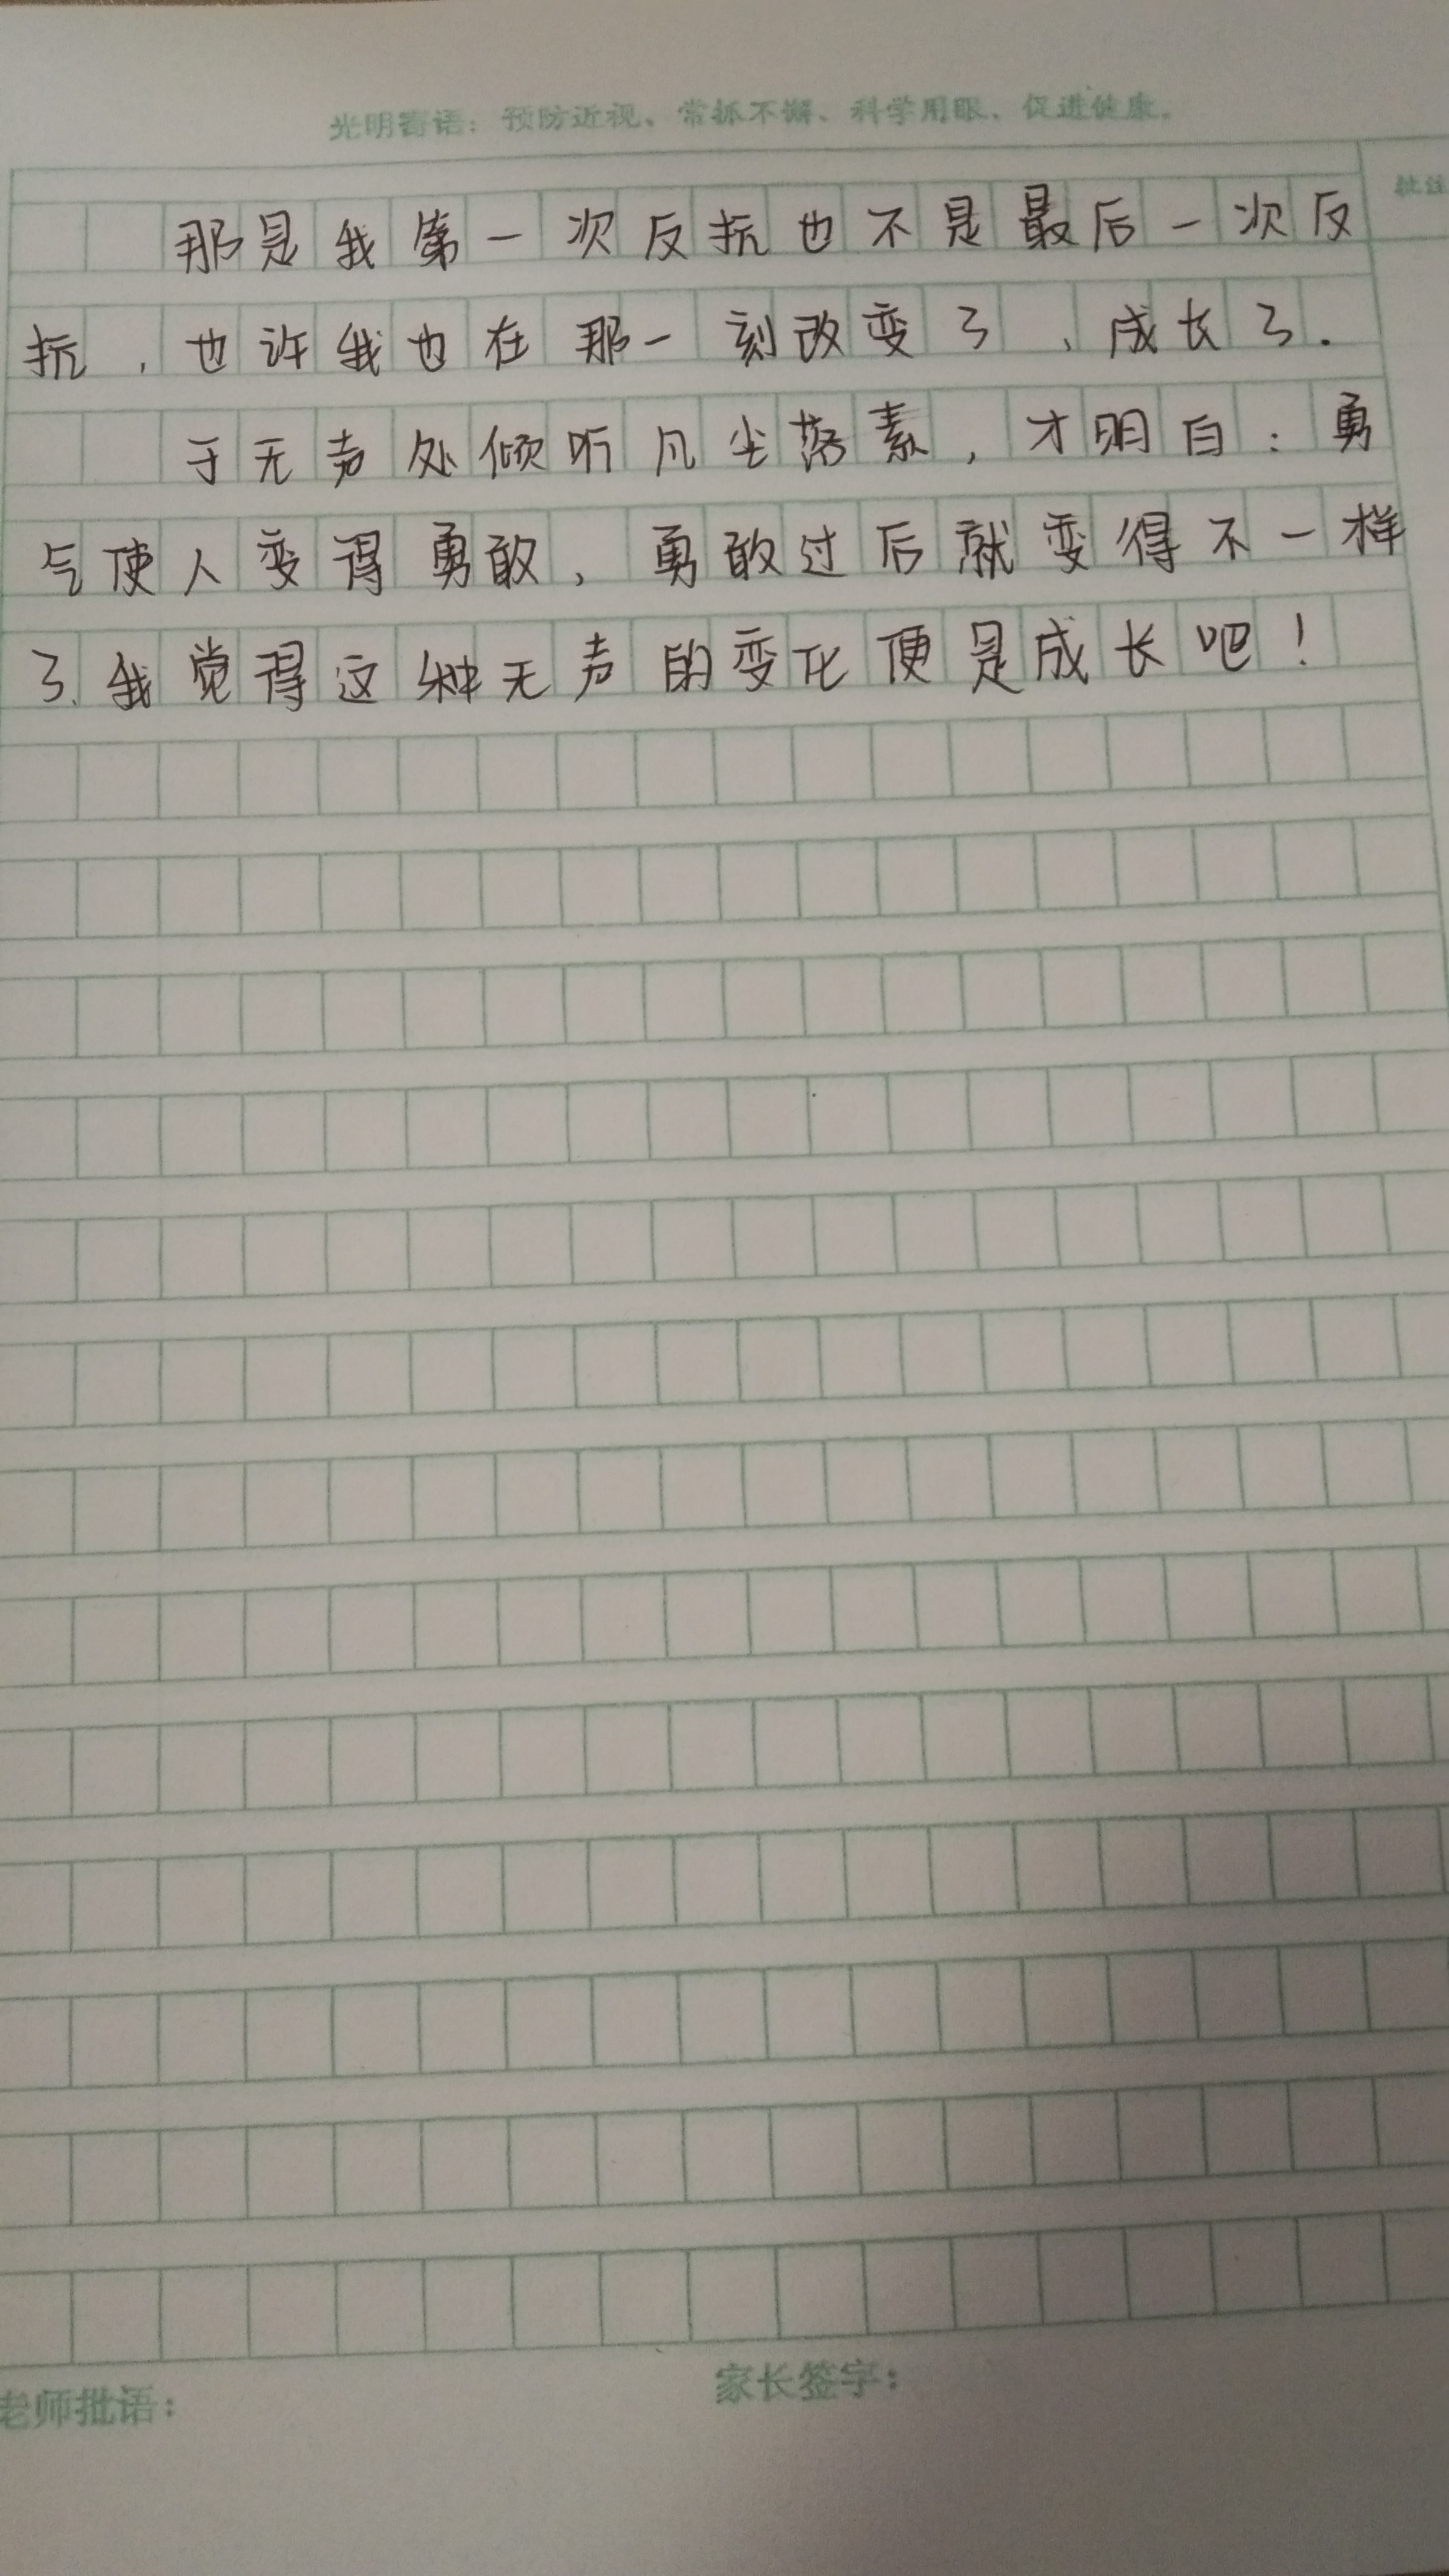 光明寄语：预防近视、常抓不懈、科学用眼、促进健康。
批注
那是我第一次反抗也不是最后一次反
抗，也许我也在那一刻改变了，成长了.
于无声处倾听凡尘落素，才明白：勇
气使人变得勇敢，勇敢过后就变得不一样
了.我觉得这种无声的变化便是成长吧！
老师批语：
家长签字：